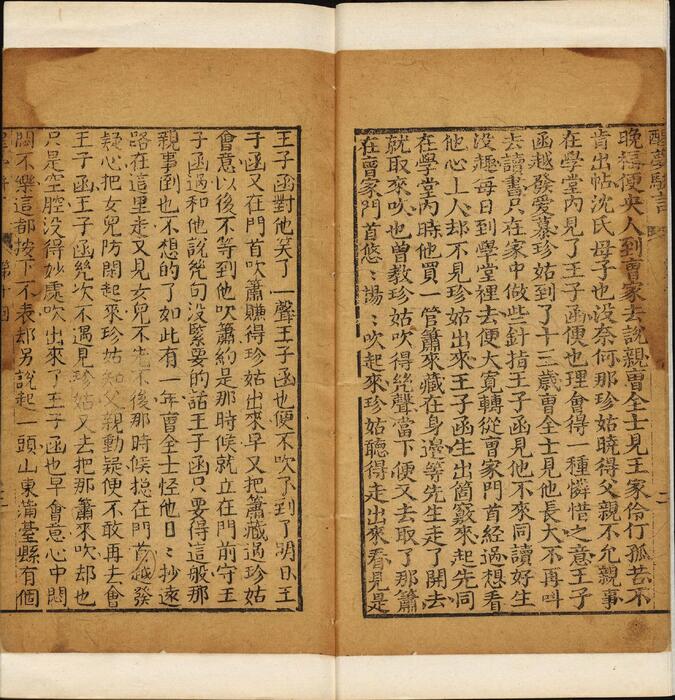 醒夢駢言 二
晚福便央人到曹家去說親曹全士見王家伶仃孤苦不
肯出帖沈氏母子也没奈何那珍姑曉得父親不允親事
在學堂內見了王子函便也理會得一種憐惜之意王子
函越發愛慕珍姑到了十三歲曹全士見他長大不再呌
去讀書只在家中做些針指王子函見他不來同讀好生
没趣每日到學堂裡去便大寬轉從曹家門首經過想看
他心上人却不見珍姑出來王子函生出箇竅來起先同
在學堂內時他買一管簫來藏在身邉等先生走了開去
就取來吹也曾教珍姑吹得幾聲當下便又去取了那簫
在曹家門首悠〻揚〻吹起來珍姑聽得走出來看見是
王子函對他笑了一聲王子函也便不吹了到了明日王
子函又在門首吹簫賺得珍姑出來早又把簫藏過珍姑
會意以後不等到他吹簫約是那時候就立在門前守王
子函過和他說幾句没緊要的話王子函只要得這般那
親事到也不想的了如此有一年曹全士怪他日〻抄遠
路在這里走又見女兒不先不後那時候捴在門首越發
疑心把女兒防閑起來珍姑知父親動疑便不敢再去會
王子函王子函幾次不遇見珍姑又去把那簫來吹却也
只是空腔没得妙處吹出來了王子函也早會意心中悶
悶不樂這都按下不表却另說起一頭山東蒲臺縣有個
第十回